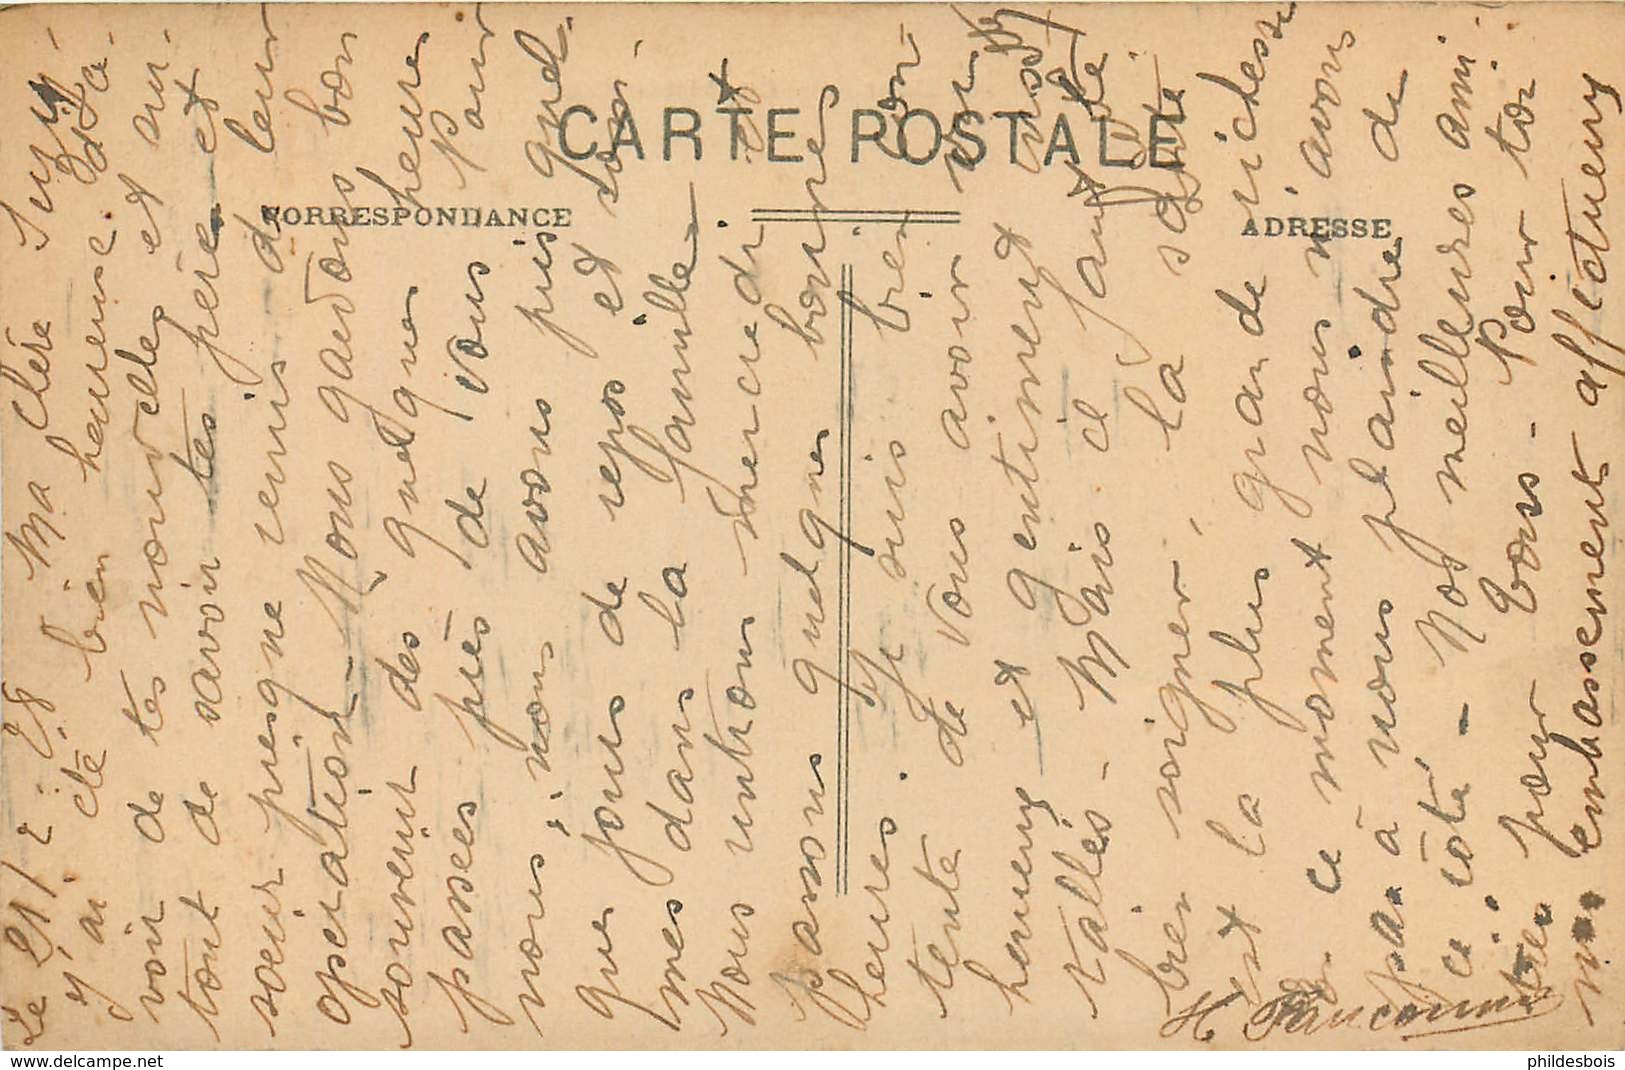 CARTE POSTALE
CORRESPONDANCE
ADRESSE
Le 21/2.28 Ma chère Suzy
J'ai été bien heureuse de rece-
voir de tes nouvelles et sur-
tout de savoir tes père et
soeur presque remis de leur
opération - Nous gardons bon
souvenir des quelques heures
passées près de vous. Pour
nous, nous avons pris quel-
ques jours de repos et som-
mes dans la famille -
Nous rentrons mercredi et
passons quelques bonnes
heures. Je suis bien con-
tente de vous avoir vu
heureux et gentiment ins-
tallés - Mais il faut te
bien soigner, la santé
est la plus grande richesse
En ce moment nous n'avons
pas à nous plaindre de
ce côté - Nos meilleures ami-
tiés pour tous - Pour toi
mes embrassements affectueux
H. Fauconnier
philesdesbois